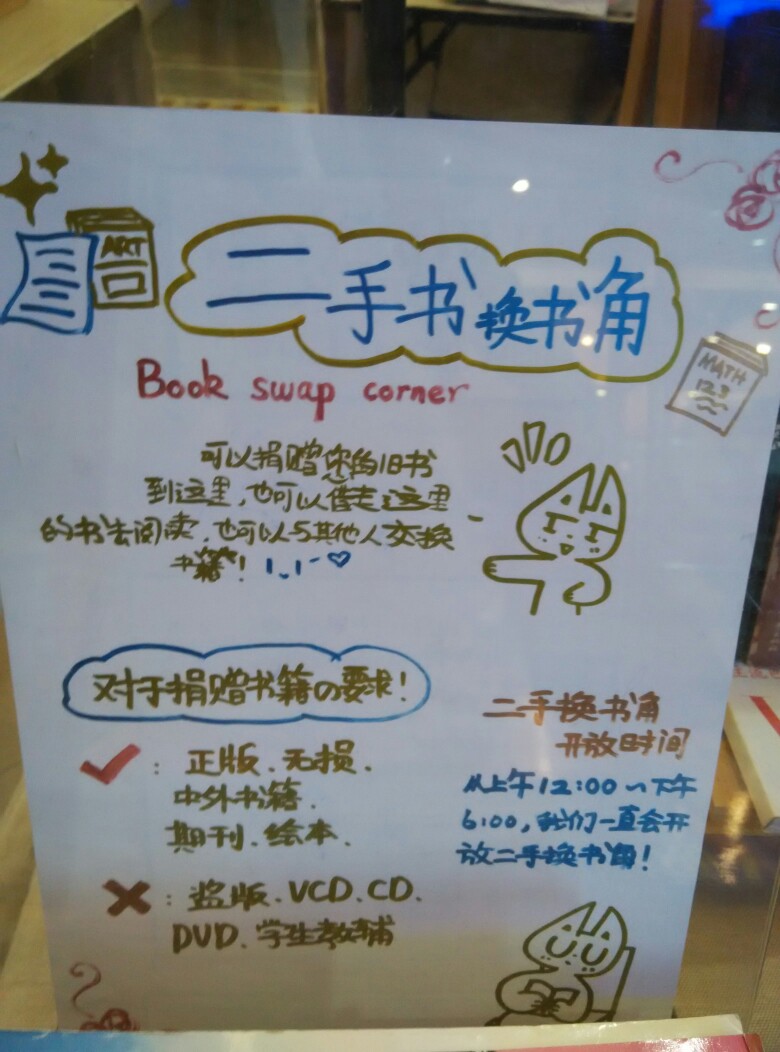 ART
二手书换书角
MATH
123
Book swap corner
可以捐赠您的旧书
到这里，也可以借走这里
的书去阅读，也可以与其他人交换
书籍！
对于捐赠书籍の要求！
：正版、无损、
中外书籍、
期刊、绘本、
：盗版、VCD、CD、
DVD、学生教辅
二手换书角
开放时间
从上午12:00~下午
6:00，我们一直会开
放二手换书角！